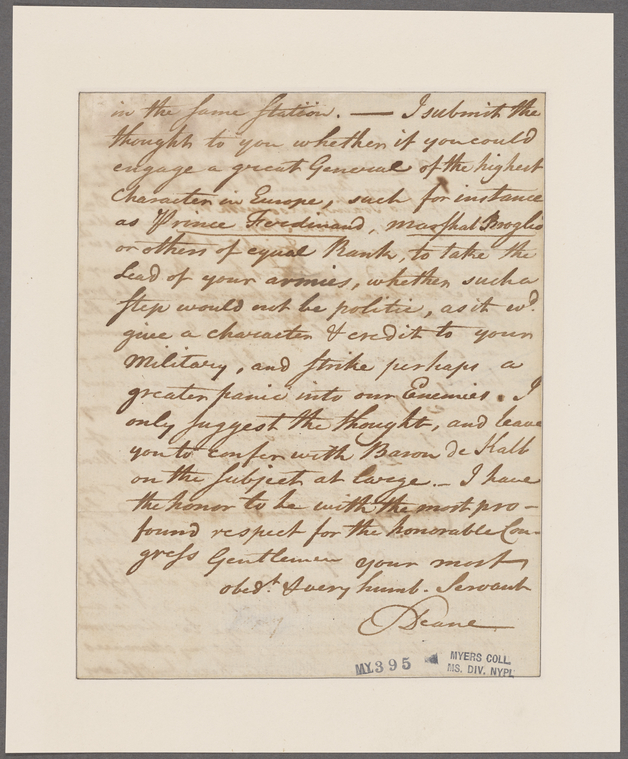 in the same station. — I submit the
thought to you whether if you could
engage a great General of the highest
Character in Europe, such for instance
as Prince Ferdinand, marshal Broglio
or others of equal Rank, to take the
Lead of your armies, whether such a
step would not be politic, as it wd.
give a character & credit to your
Military, and strike perhaps a
greater panic into our Enemies. I
only suggest the thought, and leave
you to confer with Baron de Kalb
on the subject at large. – I have
the honor to be with the most pro–
found respect for the honorable Con-
gress Gentlemen your most
obedt. & very humb. Servant
SDeane
MY.395
MYERS COLL.
MS. DIV. NYPL